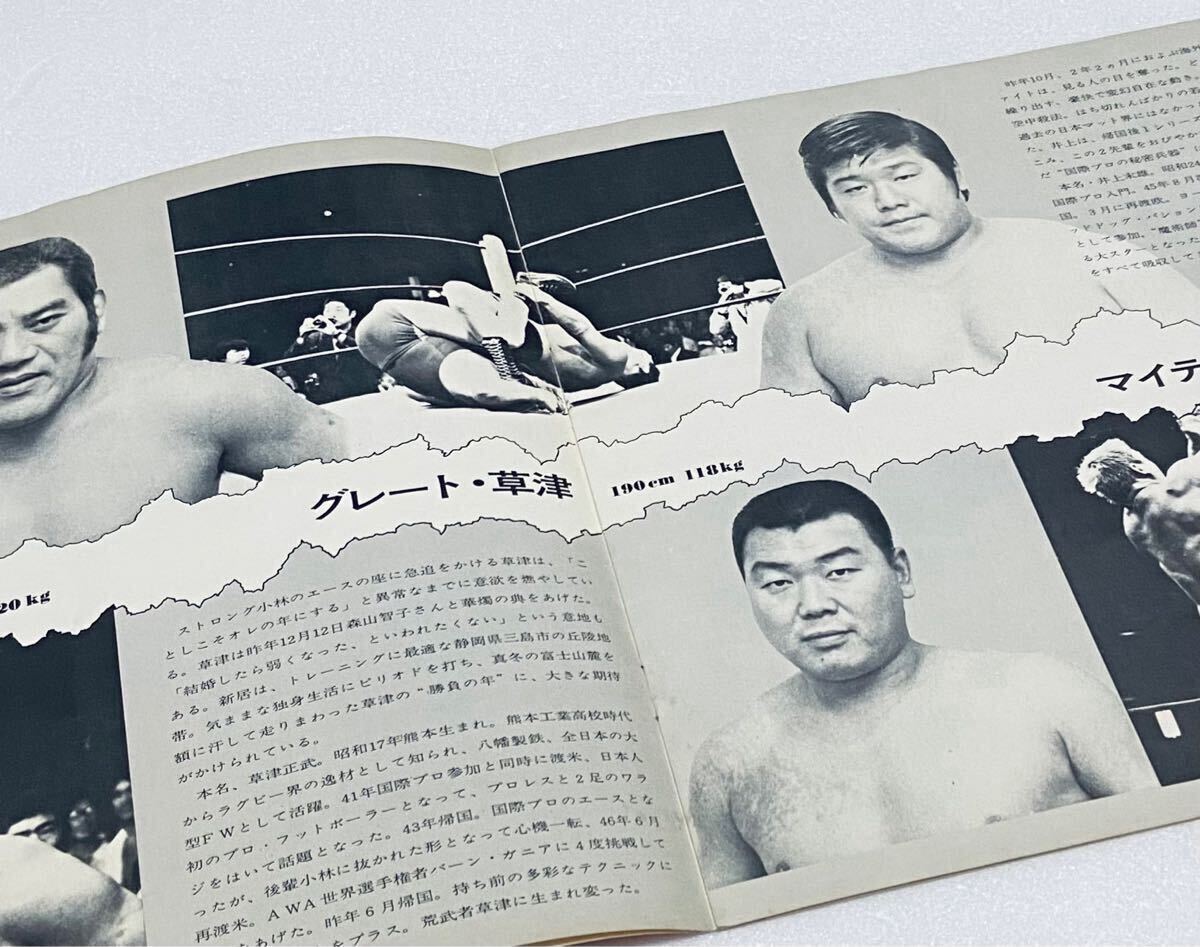 グレート・草津 190cm 118kg
20 kg
ストロング小林のエースの座に急追をかける草津は、「こ
としこそオレの年にする」と異常なまでに意欲を燃やしてい
る。草津は昨年12月12日森山智子さんと華燭の典をあげた。
「結婚したら弱くなった、といわれたくない」という意地も
ある。新居は、トレーニングに最適な静岡県三島市の丘陵地
帯。気ままな独身生活にピリオドを打ち、真冬の富士山麓を
額に汗して走りまわった草津の“勝負の年”に、大きな期待
がかけられている。
本名、草津正武。昭和17年熊本生まれ。熊本工業高校時代
からラグビー界の逸材として知られ、八幡製鉄、全日本の大
型FWとして活躍。41年国際プロ参加と同時に渡米、日本人
初のプロ・フットボーラーとなって、プロレスと2足のワラ
ジをはいて話題となった。43年帰国。国際プロのエースとな
ったが、後輩小林に抜かれた形となって心機一転、46年6月
再渡米。AWA世界選手権者バーン・ガニアに4度挑戦して
をあげた。昨年6月帰国。持ち前の多彩なテクニックに
をプラス。荒武者草津に生まれ変った。
マイテ
昨年10月、2年2ヵ月におよぶ海外
ァイトは、見る人の目を奪った。と
繰り出す、豪快で変幻自在な動き。
空中殺法。はち切れんばかりの若
過去の日本マット界にはなかっ
た。井上は、帰国後1シリーズ
こみ、この2先輩をおびやか
だ“国際プロの秘密兵器”に
本名・井上末雄。昭和24
国際プロ入門。45年8月
国。3月に再渡欧。ヨン
ッドドッグ・バション
として参加、“魔術師
る大スターとなった
をすべて吸収して